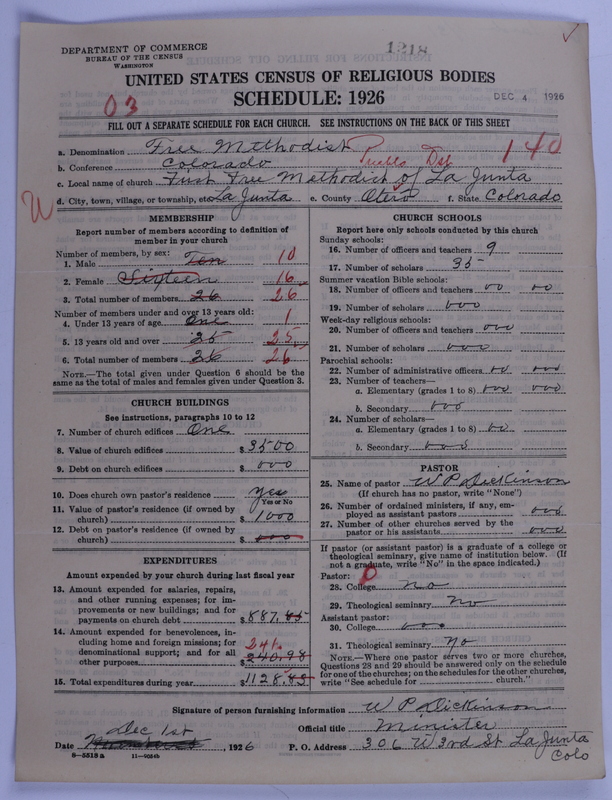 DEPARTMENT OF COMMERCE
BUREAU OF THE CENSUS
WASHINGTON
1218
UNITED STATES CENSUS OF RELIGIOUS BODIES
SCHEDULE: 1926
DEC 4 1926
03
FILL OUT A SEPARATE SCHEDULE FOR EACH CHURCH. SEE INSTRUCTIONS ON THE BACK OF THIS SHEET
a. Denomination Free Methodist 140
b. Conference Colorado Pueblo Dst
c. Local name of church First Free Methodist of La Junta
d. City, town, village, or township, etc. La Junta e. County Otero f. State Colorado
W
MEMBERSHIP
Report number of members according to definition of
member in your church
Number of members, by sex:
1. Male Ten 10
2. Female Sixteen 16
3. Total number of members 26 26
Number of members under and over 13 years old:
4. Under 13 years of age One 1
5. 13 years old and over 25 25
6. Total number of members 26 26
NOTE.—The total given under Question 6 should be the
same as the total of males and females given under Question 3.
CHURCH BUILDINGS
See instructions, paragraphs 10 to 12
7. Number of church edifices One
8. Value of church edifices $3500
9. Debt on church edifices $000
10. Does church own pastor's residence yes
Yes or No
11. Value of pastor's residence (if owned by
church) $1000
12. Debt on pastor's residence (if owned by
church) $000
EXPENDITURES
Amount expended by your church during last fiscal year
13. Amount expended for salaries, repairs,
and other running expenses; for im-
provements or new buildings; and for
payments on church debt $887.85
14. Amount expended for benevolences, in-
cluding home and foreign missions; for
denominational support; and for all
other purposes 241. $240.98
15. Total expenditures during year $1128.83
CHURCH SCHOOLS
Report here only schools conducted by this church
Sunday schools:
16. Number of officers and teachers 9
17. Number of scholars 35
Summer vacation Bible schools:
18. Number of officers and teachers 00 00
19. Number of scholars 000
Week-day religious schools:
20. Number of officers and teachers 000
21. Number of scholars 000
Parochial schools:
22. Number of administrative officers 00 000
23. Number of teachers—
a. Elementary (grades 1 to 8) 000 000
b. Secondary 000
24. Number of scholars—
a. Elementary (grades 1 to 8) 00
b. Secondary 000
PASTOR
25. Name of pastor W P Dickinson
(If church has no pastor, write "None")
26. Number of ordained ministers, if any, em-
ployed as assistant pastors 000
27. Number of other churches served by the
pastor or his assistants 000
If pastor (or assistant pastor) is a graduate of a college or
theological seminary, give name of institution below. (If
not a graduate, write "No" in the space indicated.)
Pastor: 0
28. College no
29. Theological seminary No
Assistant pastor:
30. College 000
31. Theological seminary No
NOTE.—Where one pastor serves two or more churches,
Questions 28 and 29 should be answered only on the schedule
for one of the churches; on the schedules for the other churches,
write "See schedule for ............ church."
Signature of person furnishing information W P Dickinson
Official title Minister
Dec 1st
Date 1926 P. O. Address 306 W 3rd St La Junta
Colo
8—5518a